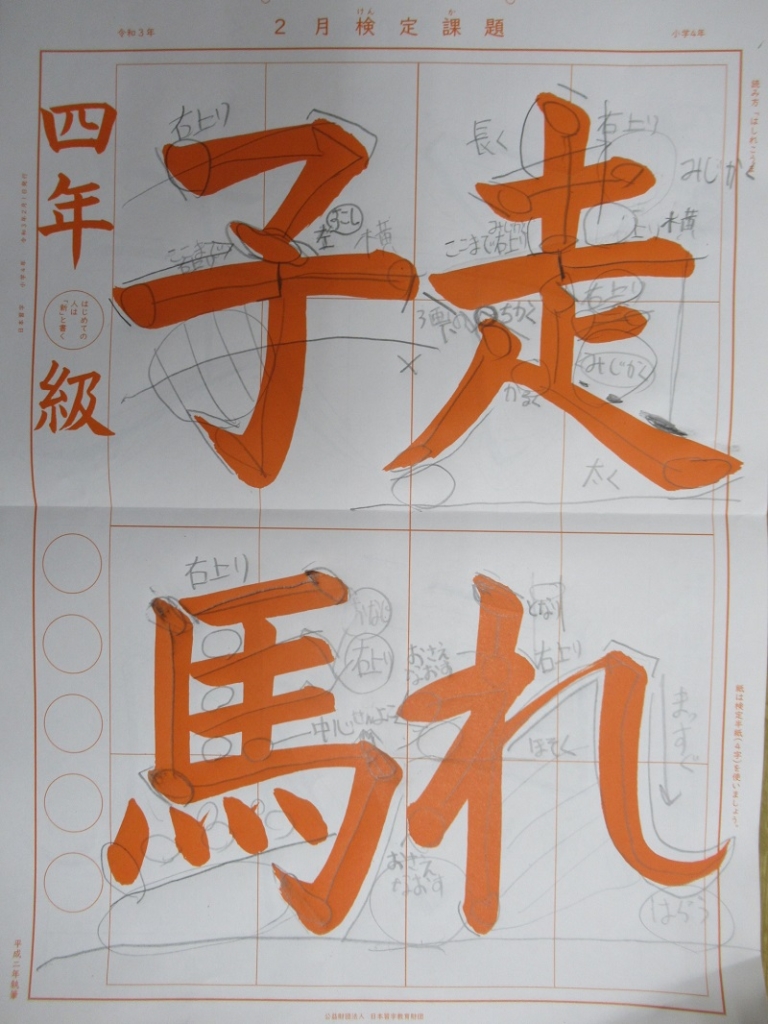 令和3年
2月検定課題
けん か
小学4年
読み方「はしれこうま」
走れ
子馬
四年
級
はじめての
人は
「新」と書く
右上り
長く
右上り
みじかく
ここまで右上り
横
横
右上り
みじかく
かるく
太く
右上り
右上り
中心せんよこ
おさえ
なおす
となり
右上り
ほそく
まっすぐ
おさえ
なおす
はらう
紙は検定半紙(4字)を使いましょう。
平成二年執筆
公益財団法人 日本習字教育財団